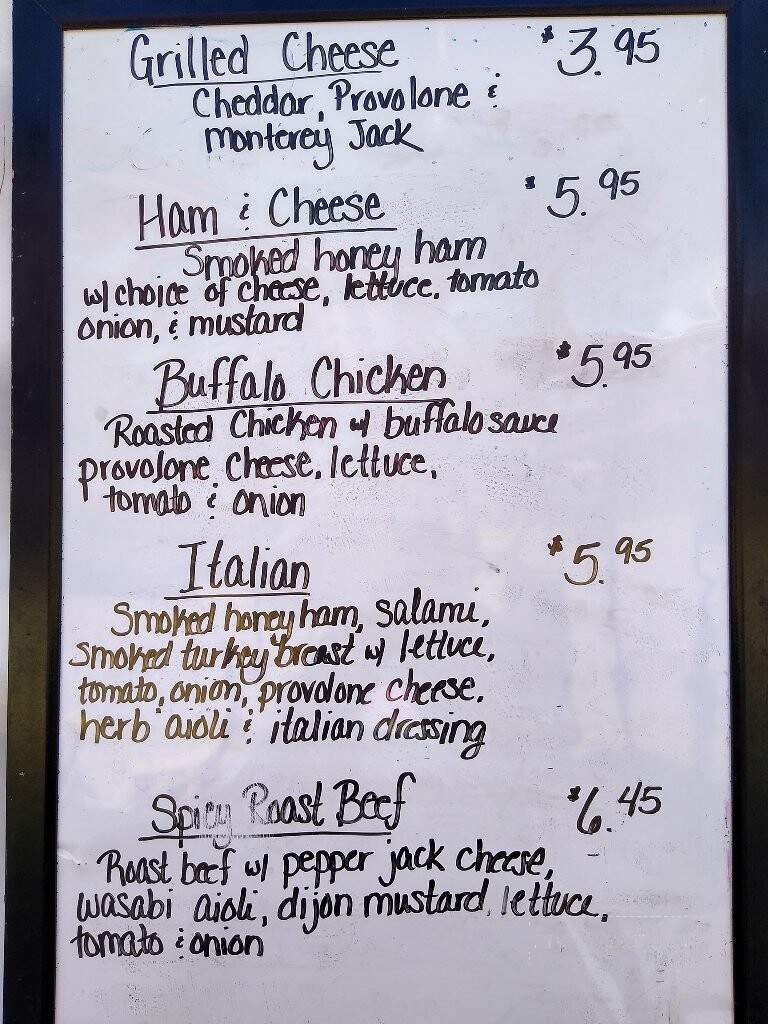 Grilled Cheese $3.95
Cheddar, Provolone &
monterey Jack
Ham & Cheese $5.95
Smoked honey ham
w/ choice of cheese, lettuce, tomato
onion, & mustard
Buffalo Chicken $5.95
Roasted Chicken w/ buffalo sauce
provolone cheese, lettuce,
tomato & onion
Italian $5.95
Smoked honey ham, salami,
smoked turkey breast w/ lettuce,
tomato, onion, provolone cheese,
herb aioli & italian dressing
Spicy Roast Beef $6.45
Roast beef w/ pepper jack cheese,
wasabi aioli, dijon mustard, lettuce,
tomato & onion